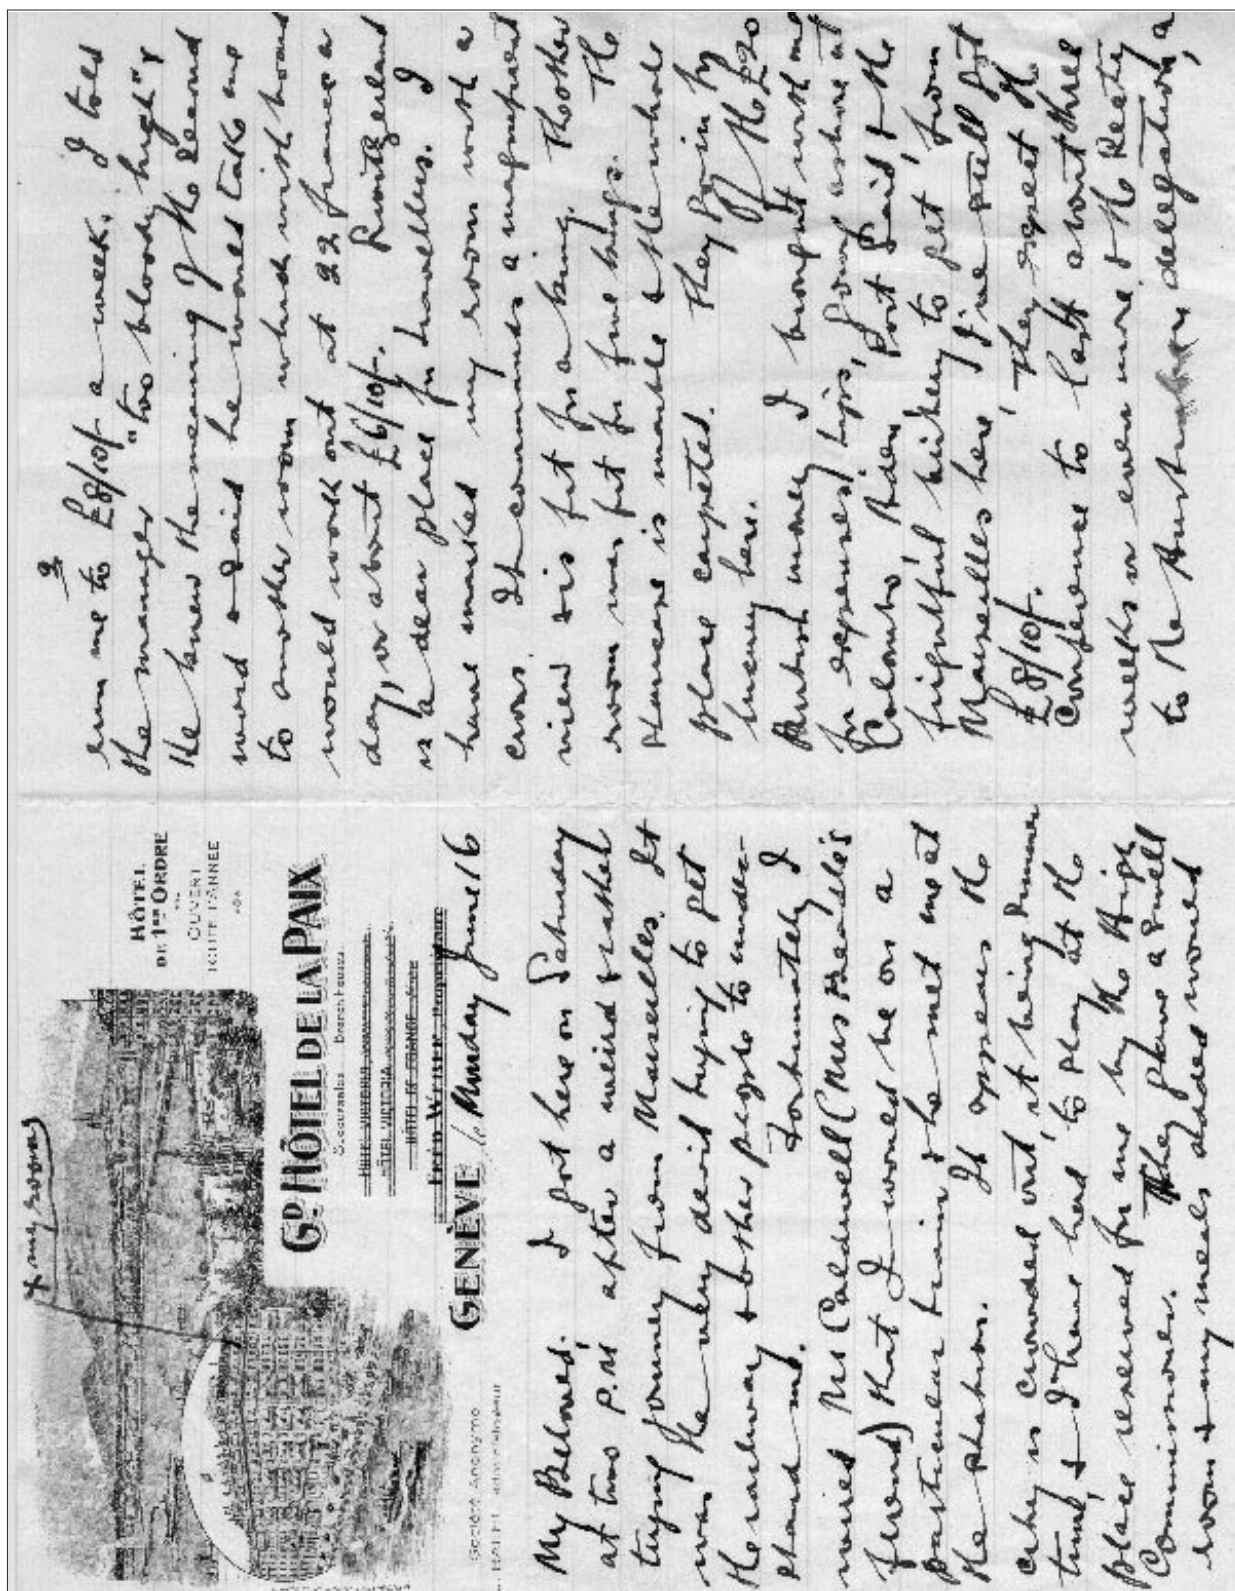 x my rooms
HÔTEL
DE 1ER ORDRE
OUVERT
TOUTE L'ANNÉE
GD. HÔTEL DE LA PAIX
Succursales Branch Houses
HÔTEL VICTORIA
HÔTEL DE FRANCE
FRÉD WEBER, Propriétaire
Société Anonyme
GENÈVE le Monday June 16
My Beloved. I got here on Saturday
at two P.M after a weird & rather
trying journey from Marseilles. It
was the very devil trying to get
the railway & other people to under-
stand me. Fortunately I
wired Mr Caldwell (Mrs Beadle's
friend) that I would be on a
particular train & he met me at
the station. It appears the
city is crowded out, it being Summer
time, & I have had to stay at the
place reserved for me by the High
Commissioner. They place a small
room & my meals added would
2
run me to £8/10/- a week. I told
the manager "too bloody high" &
He knew the meaning of the second
word & said he would take me
to another room which with board
would work out at 22 francs a
day, or about £6/10/-. Switzerland
is a dear place for travellers. I
have marked my room with a
cross. It commands a magnificent
view & is fit for a king. The other
room was fit for five kings. The
staircase is marble & the whole
place carpeted. They go in for
luxury here. Of the £20
British money I brought with me
for expenses, tips, going ashore at
Colombo, Aden, Port Said & the
frightful hikery to get from
Marseilles here, I've still got
£8/10/-. They expect the
Conference to last about three
weeks or even more & the Treaty
to the Australian delegation, a